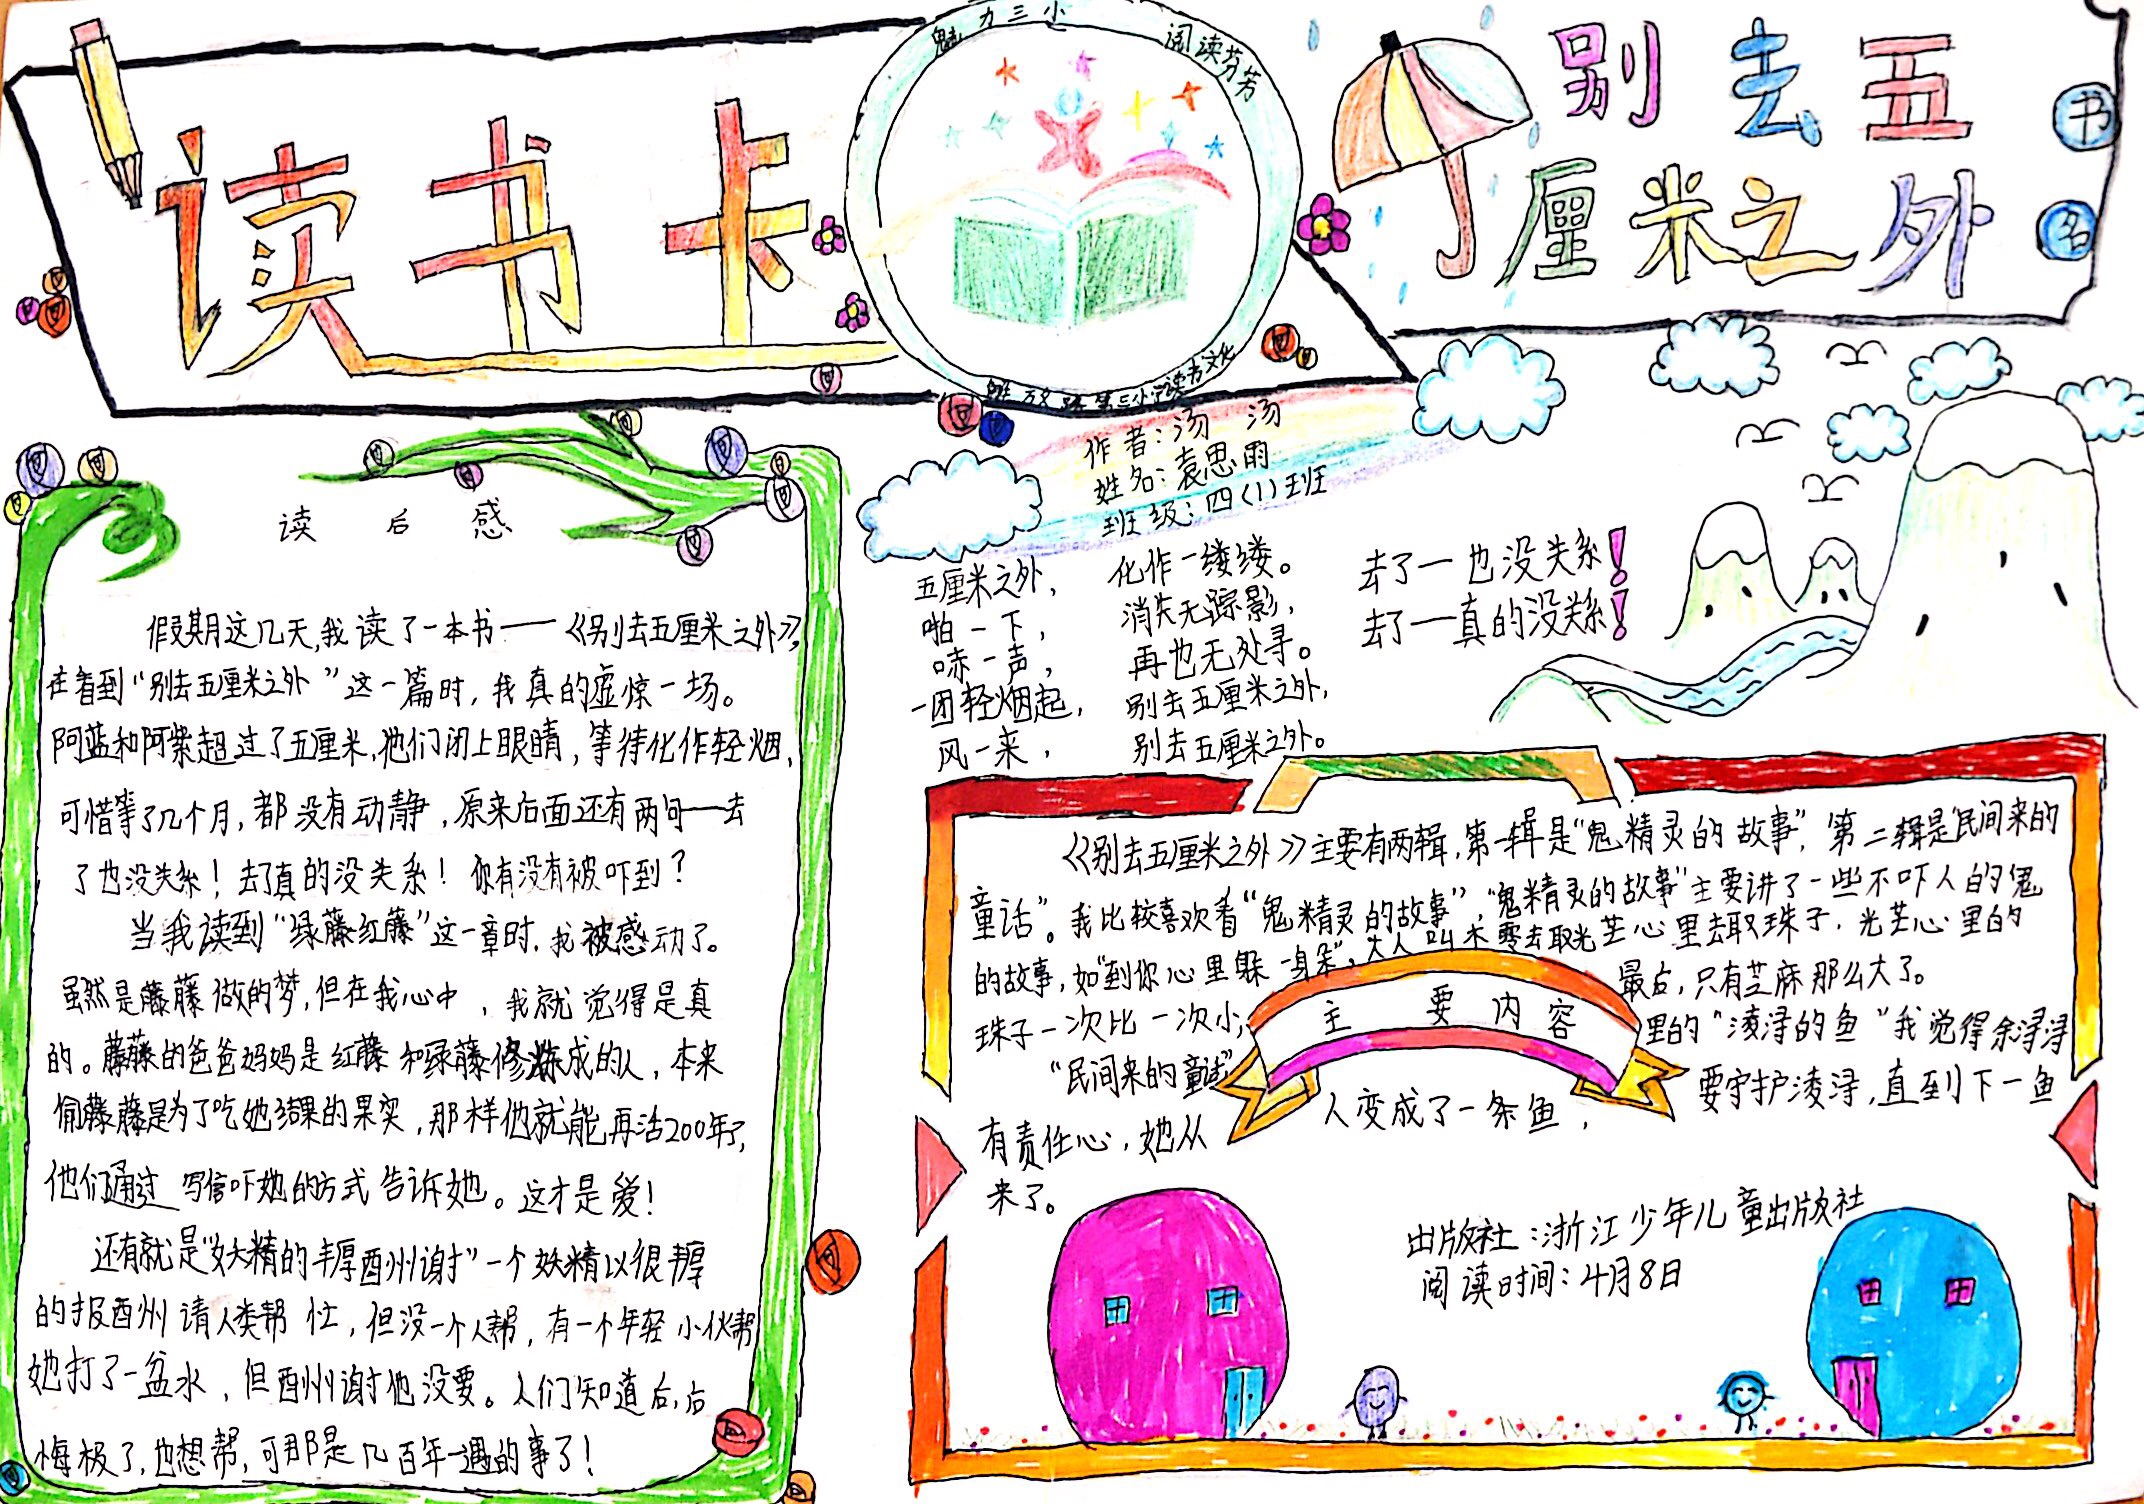 读书卡
魅力三小
阅读芬芳
第三小学读书文化
别去五
厘米之外
书名
作者：汤 汤
姓名：袁思雨
班级：四（1）班
读 后 感
假期这几天，我读了一本书——《别去五厘米之外》，
在看到“别去五厘米之外”这一篇时，我真的虚惊一场。
阿蓝和阿紫超过了五厘米，他们闭上眼睛，等待化作轻烟，
可惜等了几个月，都没有动静，原来后面还有两句——去
了也没关系！去了真的没关系！你有没有被吓到？
当我读到“绿藤红藤”这一章时，我被感动了。
虽然是藤藤做的梦，但在我心中，我就觉得是真
的。藤藤的爸爸妈妈是红藤和绿藤修炼成的人，本来
偷藤藤是为了吃她结果的果实，那样他就能再活200年了，
他们通过写信吓她的方式告诉她。这才是爱！
还有就是“妖精的丰厚酬谢”一个妖精以很丰厚
的报酬请人类帮忙，但没一个人帮，有一个年轻小伙帮
她打了一盆水，但酬谢他没要。人们知道后，后
悔极了，也想帮，可那是几百年一遇的事了！
五厘米之外，
啪一下，
哧一声，
一团轻烟起，
风一来，
化作一缕缕。
消失无踪影，
再也无处寻。
别去五厘米之外，
别去五厘米之外。
去了一也没关系！
去了一真的没关系！
《别去五厘米之外》主要有两辑，第一辑是“鬼精灵的故事”，第二辑是“民间来的
童话”。我比较喜欢看“鬼精灵的故事”，“鬼精灵的故事”主要讲了一些不吓人的鬼
的故事，如“到你心里躲一躲”，大人叫木零去取光芒心里去取珠子，光芒心里的
珠子一次比一次小，最后，只有芝麻那么大了。
“民间来的童话”里的“凌浔的鱼”我觉得余浔浔
有责任心，她从人变成了一条鱼，要守护凌浔，直到下一鱼
来了。
主要内容
出版社：浙江少年儿童出版社
阅读时间：4月8日